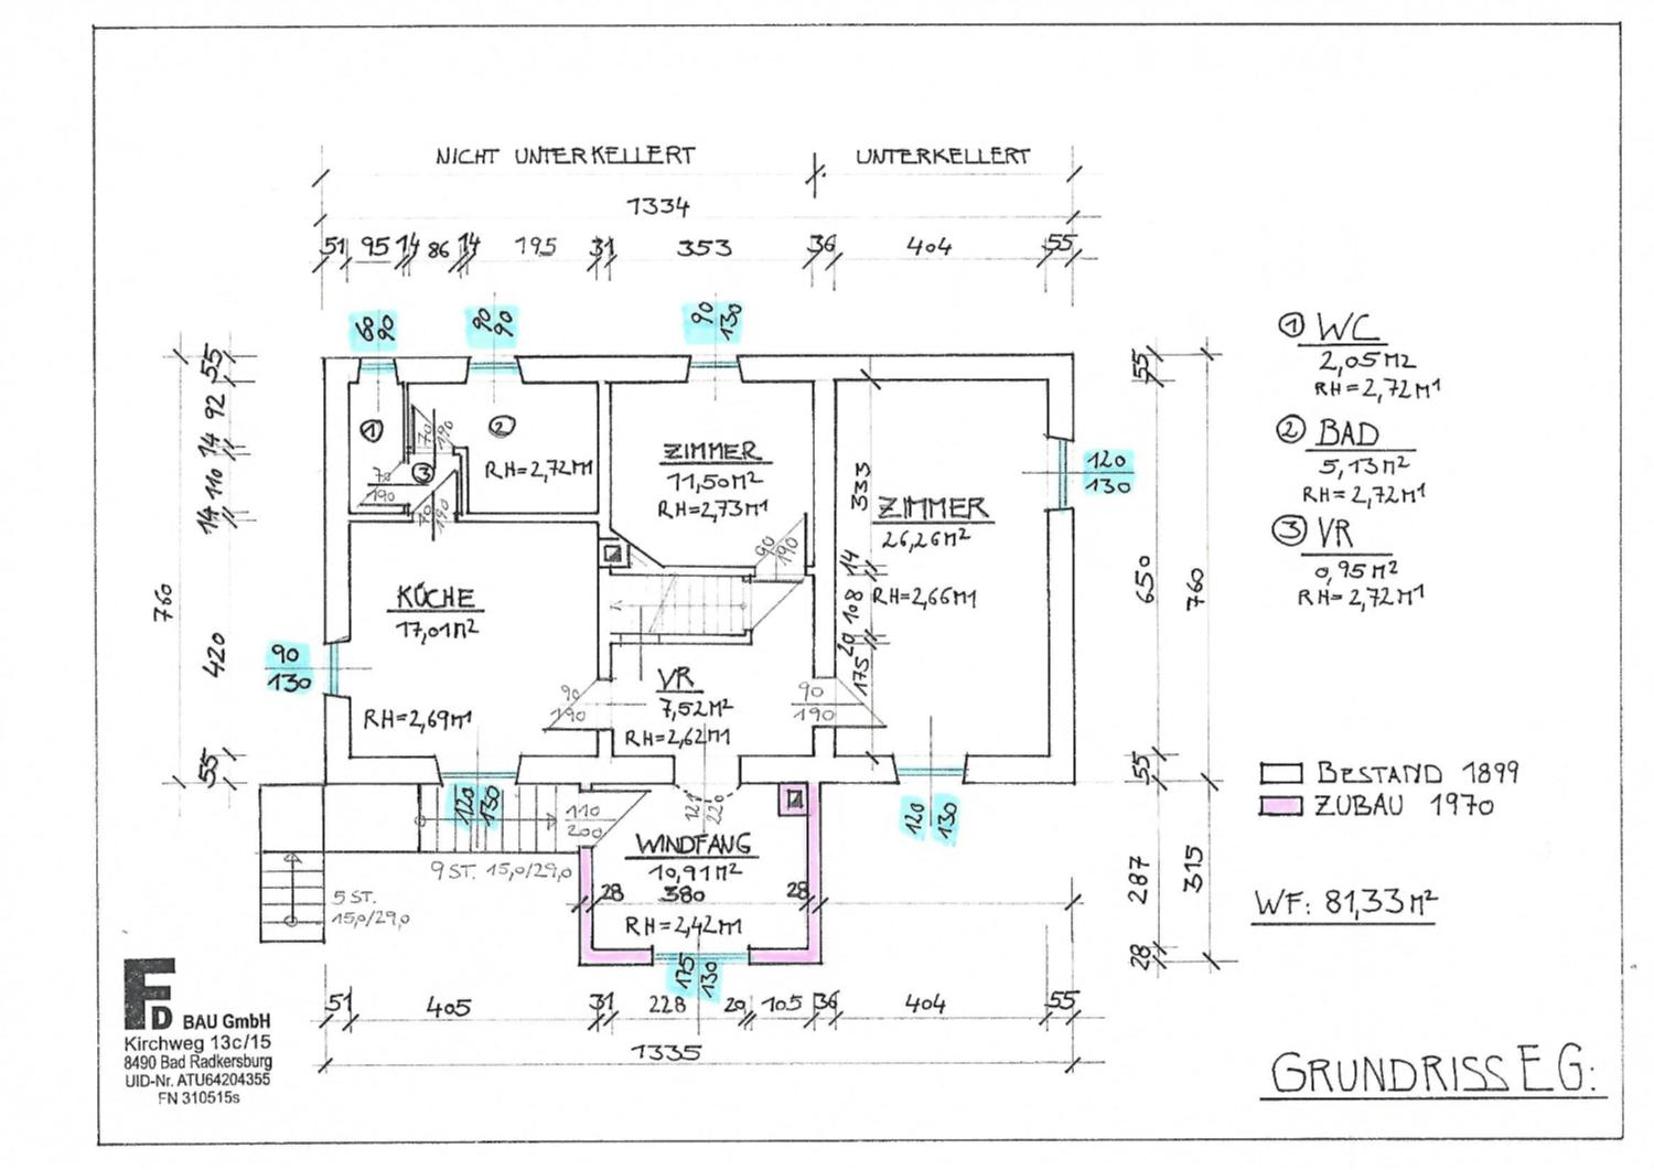 NICHT UNTERKELLERT
UNTERKELLERT
1334
51 95 14 86 14 195 31 353 36 404 55
60 90
90 90
90 130
① WC
2,05 M2
RH=2,72 M1
② BAD
5,13 M2
RH=2,72 M1
③ VR
0,95 M2
RH=2,72 M1
55
92
14
110
14
420
55
760
①
②
③
RH=2,72 M1
70 190
70 190
70 190
ZIMMER
11,50 M2
RH=2,73 M1
90 190
ZIMMER
26,26 M2
RH=2,66 M1
333
14
108
20
175
120
130
55
650
760
55
KÜCHE
17,01 M2
RH=2,69 M1
90
130
90
190
VR
7,52 M2
RH=2,62 M1
90
190
120 130
120 130
110
200
220
9 ST. 15,0/29,0
5 ST.
15,0/29,0
WINDFANG
10,91 M2
28 380 28
RH=2,42 M1
175 130
287
315
28
BESTAND 1899
ZUBAU 1970
WF: 81,33 M2
51 405 31 228 20 105 36 404 55
1335
FD BAU GmbH
Kirchweg 13c/15
8490 Bad Radkersburg
UID-Nr. ATU64204355
FN 310515s
GRUNDRISS EG: